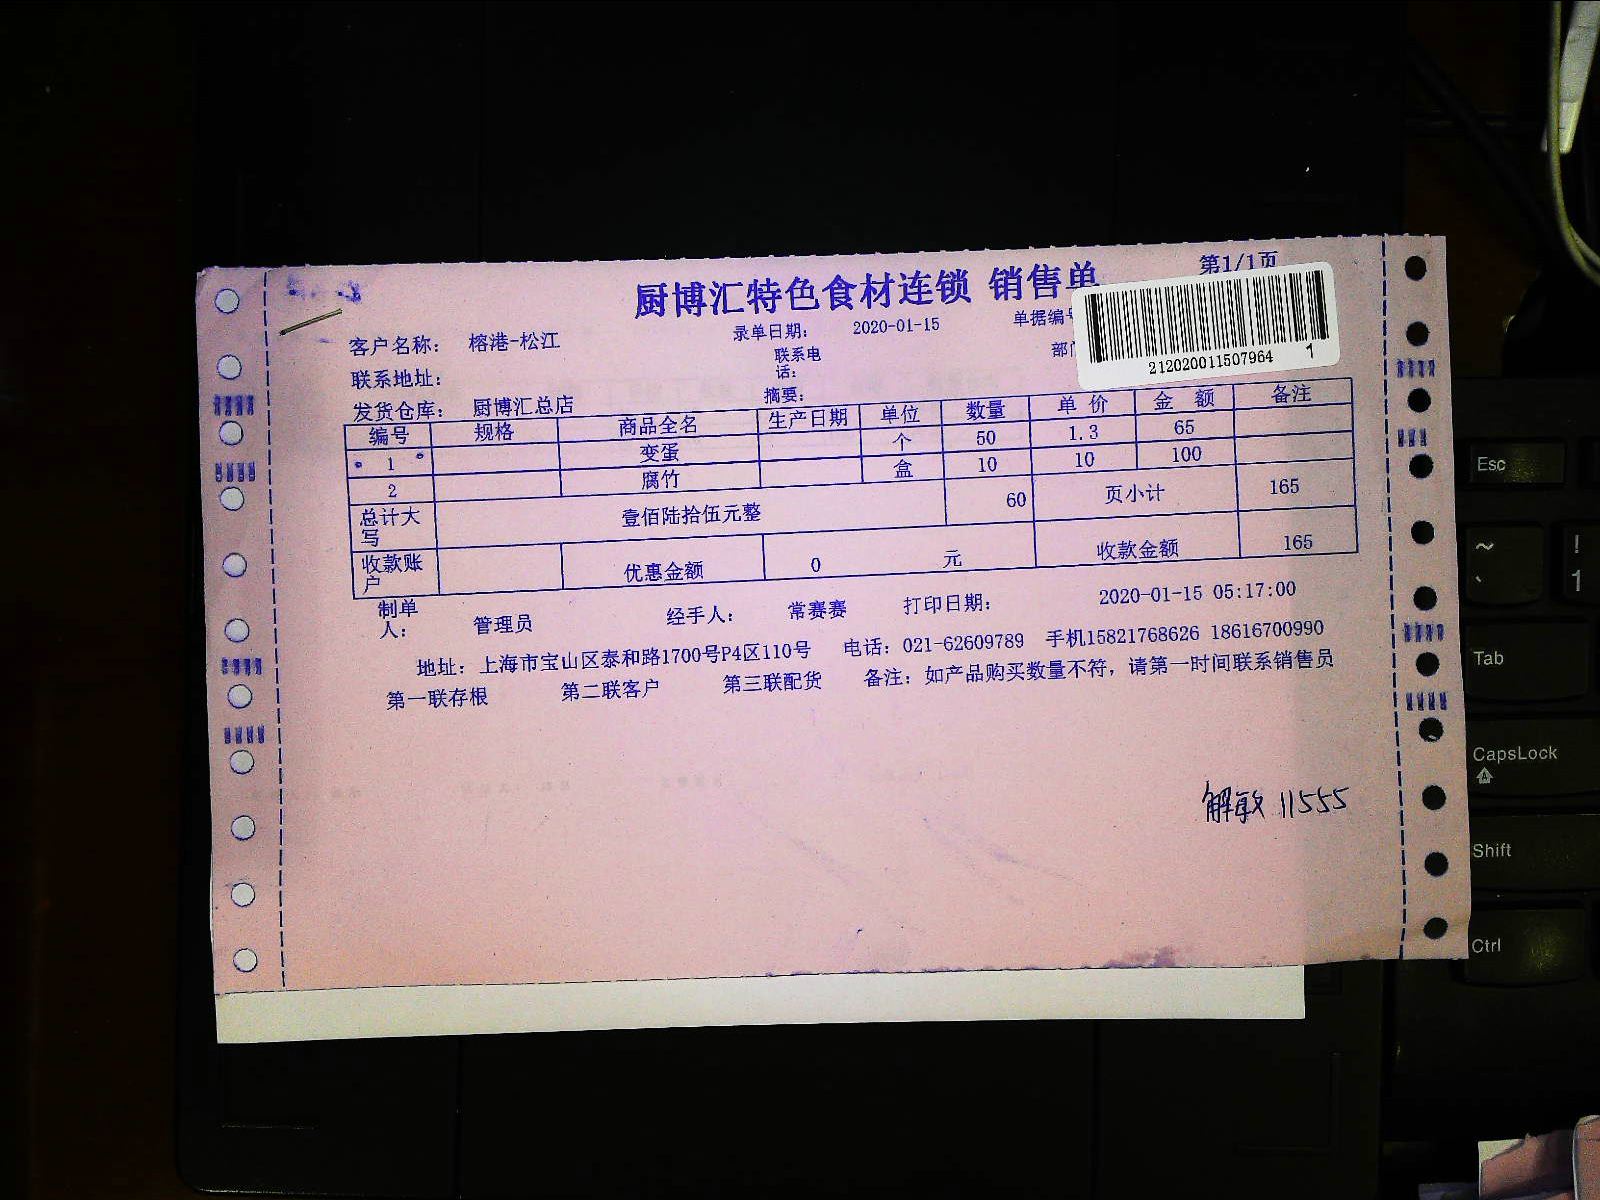 第1/1页
厨博汇特色食材连锁 销售单
客户名称: 榕港-松江 录单日期: 2020-01-15 单据编号
联系地址: 联系电话: 部门
发货仓库: 厨博汇总店 摘要:
212020011507964 1
编号 规格 商品全名 生产日期 单位 数量 单 价 金 额 备注
1 变蛋 个 50 1.3 65
2 腐竹 盒 10 10 100
总计大写 壹佰陆拾伍元整 60 页小计 165
收款账户 优惠金额 0 元 收款金额 165
制单人: 管理员 经手人: 常赛赛 打印日期: 2020-01-15 05:17:00
地址: 上海市宝山区泰和路1700号P4区110号 电话: 021-62609789 手机15821768626 18616700990
第一联存根 第二联客户 第三联配货 备注: 如产品购买数量不符, 请第一时间联系销售员
解敏 11555
Esc
~
` ! 1
Tab
CapsLock
Shift
Ctrl